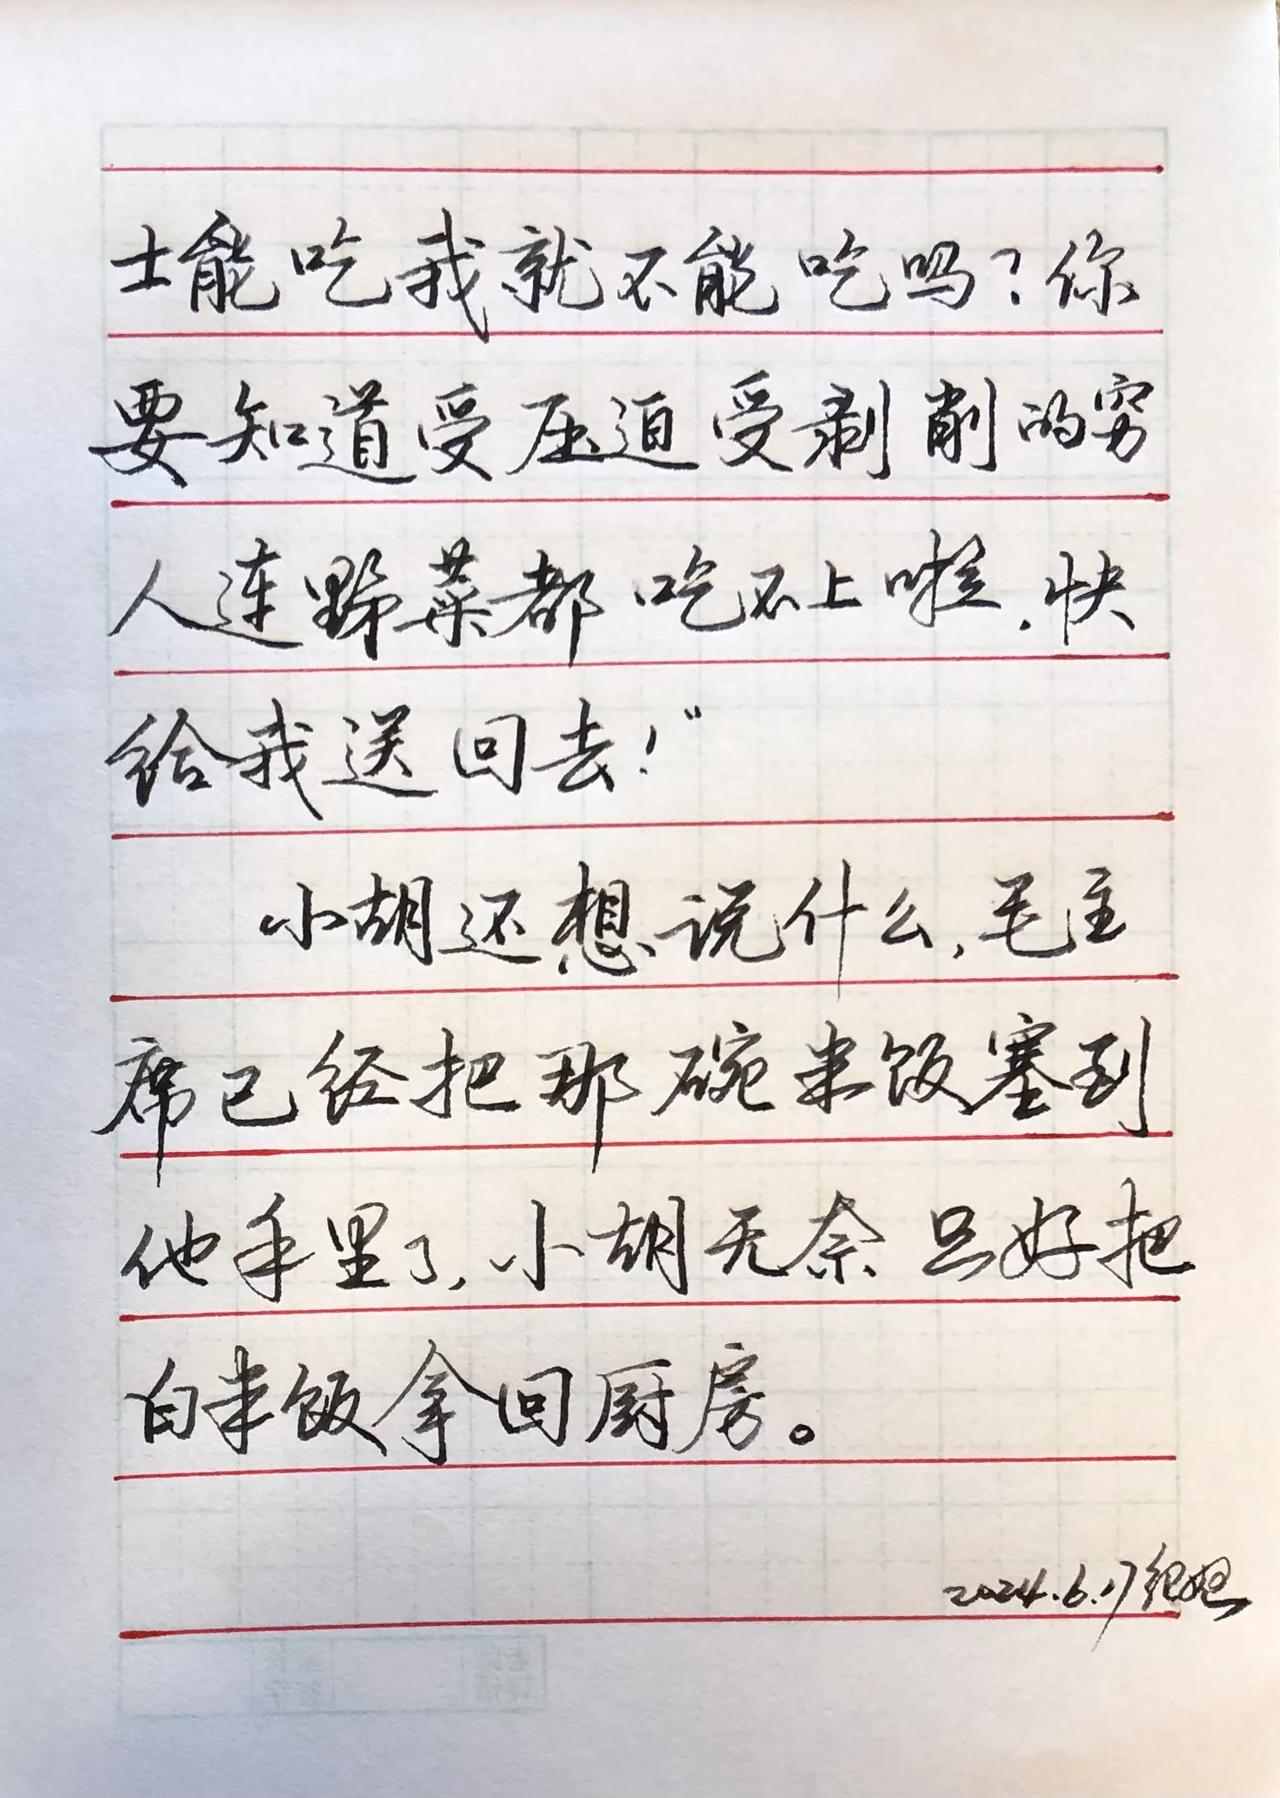 士能吃我就不能吃吗？你
要知道受压迫受剥削的穷
人连野菜都吃不上啦，快
给我送回去！”
小胡还想说什么，毛主
席已经把那碗米饭塞到
他手里了，小胡无奈只好把
白米饭拿回厨房。
2024.6.17